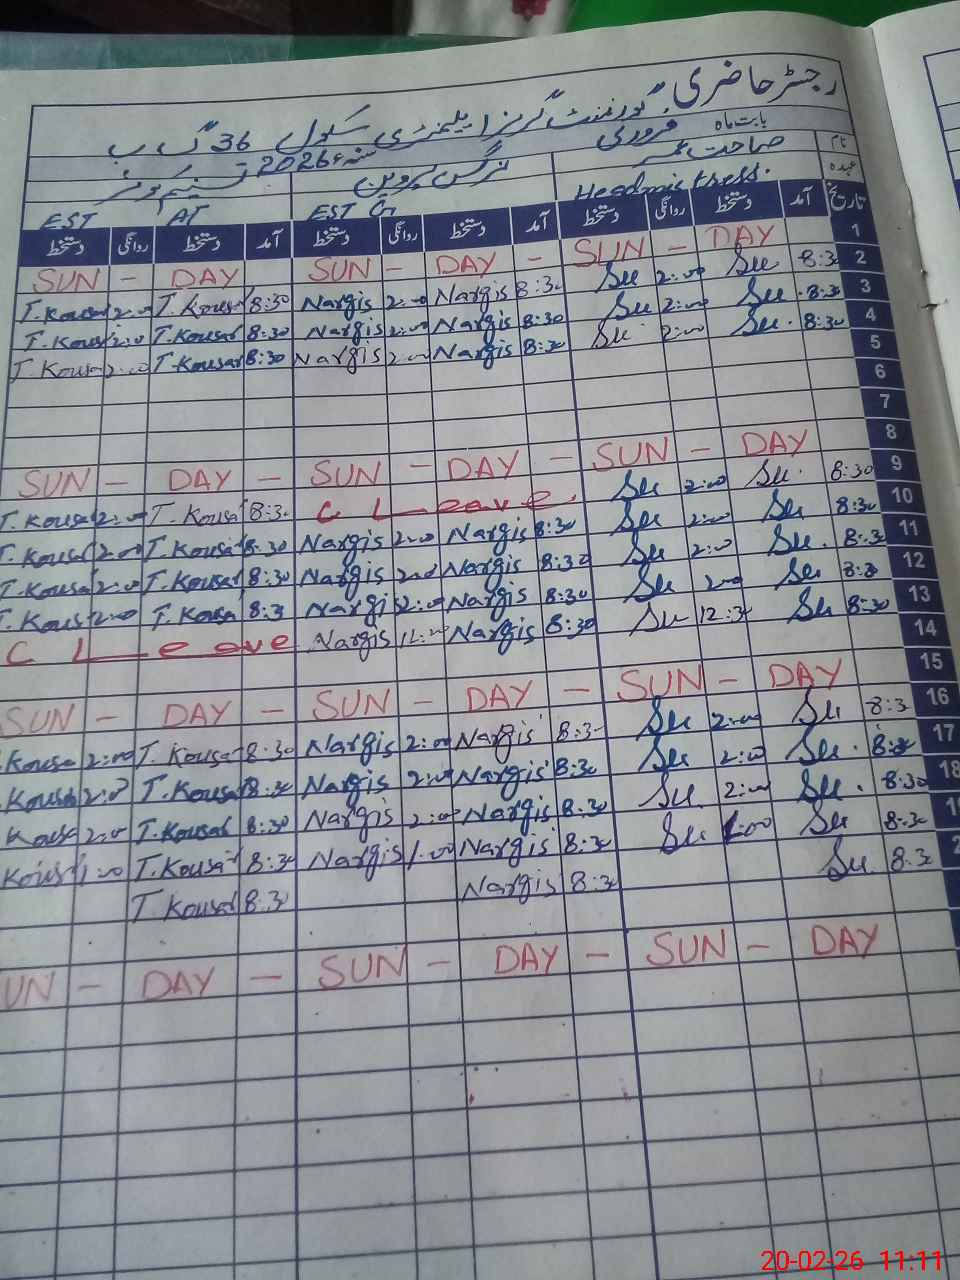 رجسٹر حاضری گورنمنٹ گرلز ایلیمنٹری سکول 36 گ ب
بابت ماہ فروری سنہ 2026ء
نام صباحت نرگس پروین تسنیم کوثر
عہدہ Headmistress. EST G EST AT
تاریخ آمد دستخط روانگی دستخط آمد دستخط روانگی دستخط آمد دستخط روانگی دستخط
1
SUN - DAY - SUN - DAY - SUN - DAY 2
T.Kousar 2:00 T.Kousar 8:30 Nargis 2:00 Nargis 8:30 2:00 8:30 3
T.Kousar 2:00 T.Kousar 8:30 Nargis 2:00 Nargis 8:30 2:00 8:30 4
T.Kousar 2:00 T.Kousar 8:30 Nargis 2:00 Nargis 8:30 2:00 8:30 5
6
7
8
SUN - DAY - SUN - DAY - SUN - DAY 9
T.Kousar 2:00 T.Kousar 8:30 C Leave. 2:00 8:30 10
T.Kousar 2:00 T.Kousar 8:30 Nargis 2:00 Nargis 8:30 2:00 8:30 11
T.Kousar 2:00 T.Kousar 8:30 Nargis 2:00 Nargis 8:30 2:00 8:30 12
T.Kousar 2:00 T.Kousar 8:30 Nargis 2:00 Nargis 8:30 2:00 8:30 13
C Leave Nargis Nargis 8:30 12:30 8:30 14
15
SUN - DAY - SUN - DAY - SUN - DAY 16
Kousar 2:00 T.Kousar 8:30 Nargis 2:00 Nargis 8:30 2:00 8:30 17
Kousar 2:00 T.Kousar 8:30 Nargis 2:00 Nargis 8:30 2:00 8:30 18
Kousar 2:00 T.Kousar 8:30 Nargis 2:00 Nargis 8:30 2:00 8:30
Kousar 1:00 T.Kousar 8:30 Nargis 1:00 Nargis 8:30 1:00 8:30
T.Kousar 8:30 Nargis 8:30 8:30
UN - DAY - SUN - DAY - SUN - DAY
20-02-26 11:11